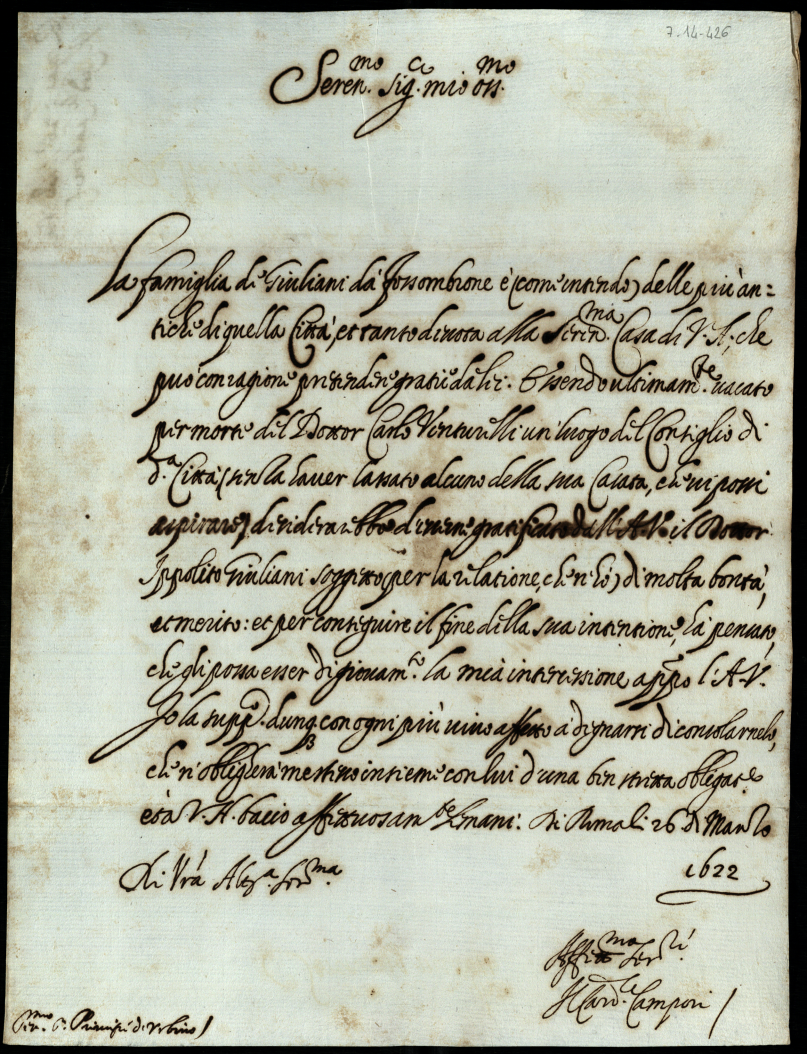 7-14-426
Seren.mo Sig.r mio oss.mo
La famiglia de Giuliani dà Fossombrone è (come intendo) delle più an=
tiche di quella Città, et tanto divota alla Seren.ma Casa di V. A., che
può con ragione pretendere gratie da lei. Essendo ultimam.te vacato
per morte del Dottor Carlo Venturelli un luogo del Consiglio di
d.a Città (senza haver lassato alcuno della sua Casata, che vi possi
aspirare) desiderarebbe d'esserne gratificato dall'A. V. il Dottor
Ippolito Giuliani soggetto (per la relatione, che n'hò) di molta bontà,
et merito: et per conseguire il fine della sua intentione, hà pensato,
che gli possa esser di giovam.to la mia intercessione appo l'A. V.
Io la supp.co dunq. con ogni più vivo affetto à degnarsi di consolarnelo,
che n'obligherà me stesso insieme con lui d'una ben stretta obligat.e
et à V. A. bacio affettuosam.te le mani. Di Roma li 26 di Marzo
1622
Di V.ra Altez.a Ser.ma
Affett.ma Ser.re
Il Card.le Campori
Ser.mo S. Principe d'Urbino